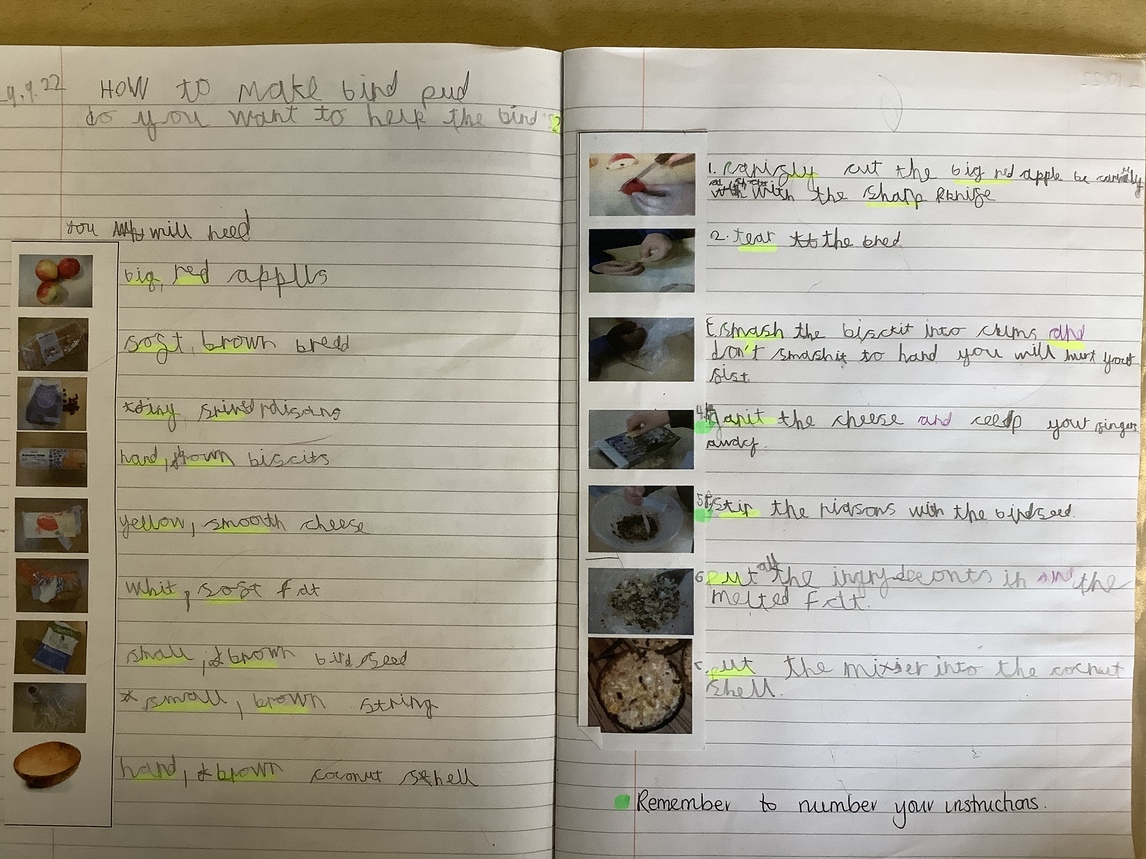 9.22 HOW to make bird pud
do you want to help the birds?
you will need
big, red applls
soft, brown bredd
tiny,
hard, brown biscits
yellow, smooth cheese
whit, soft fat
small, brown bird seed
small, brown string
hard, brown coconut shell
1. cut the big red apple be
with the sharp knife
2. tear the bred
smash the bisckit into crums and
don't smash it to hard you will hurt your
fist
4. the cheese and ceedp your fingers
5. stir the with the birdseed.
6. put all the in the
melted fat.
put the mixser into the cocnut
shell.
Remember to number your instructions.